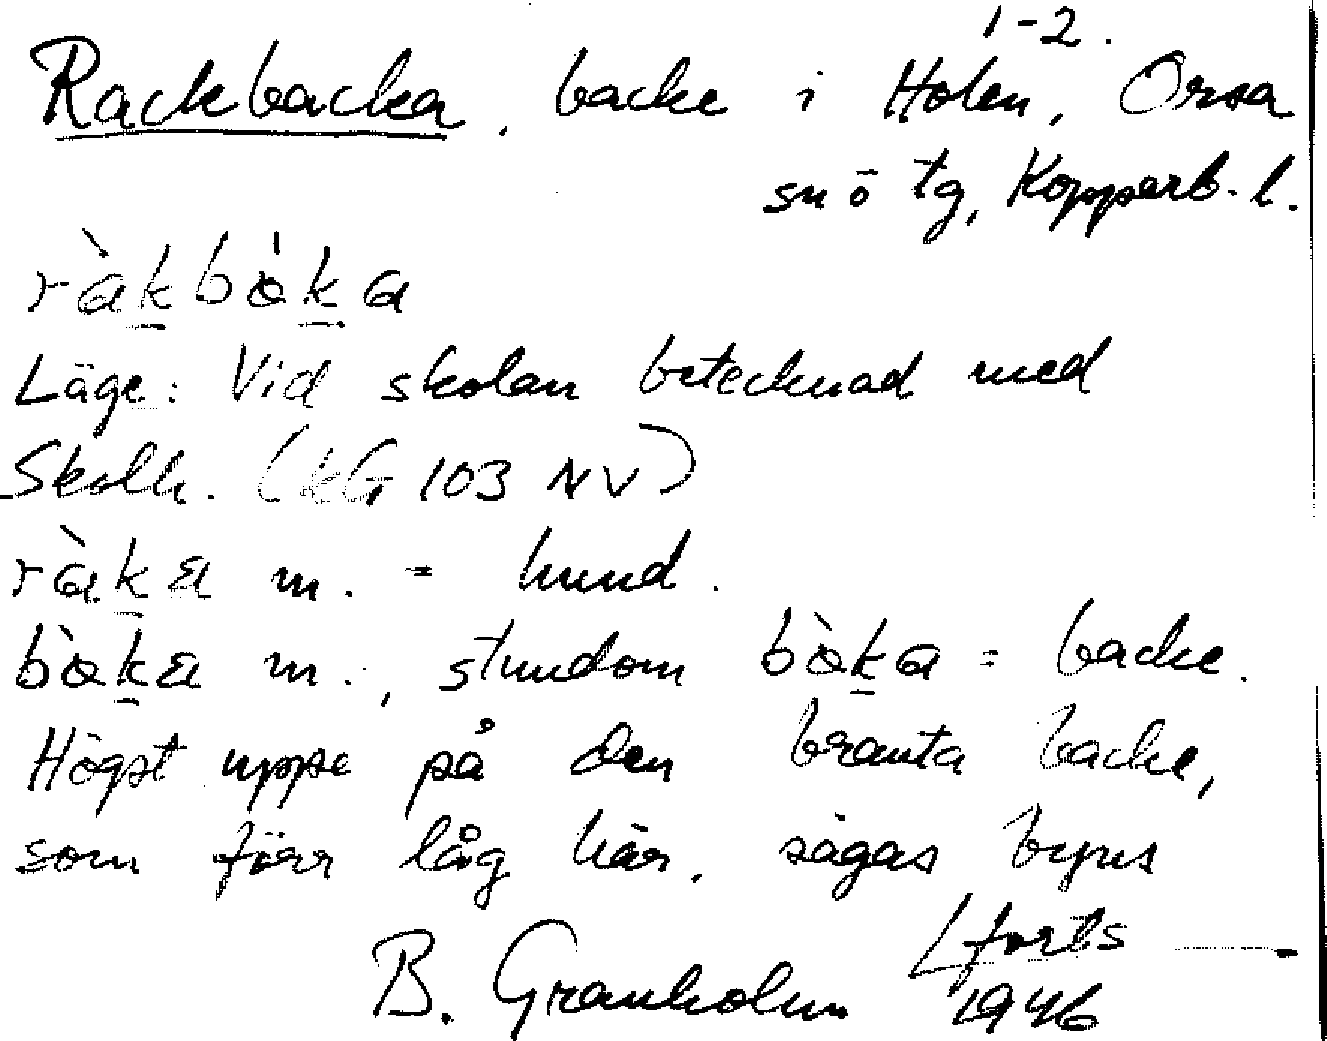 1-2.
Rackbacka, backe i Holen, Orsa
sn ö tg, Kopperb. l.
ràkbàka
Läge: Vid skolan betecknad med
Skolh. (kG 103 NV)
ràka m. = hund.
bàka m., stundom bàka = backe.
Högst uppe på den branta backe,
som förr låg här, sägas byns
forts
B. Granholm 1946